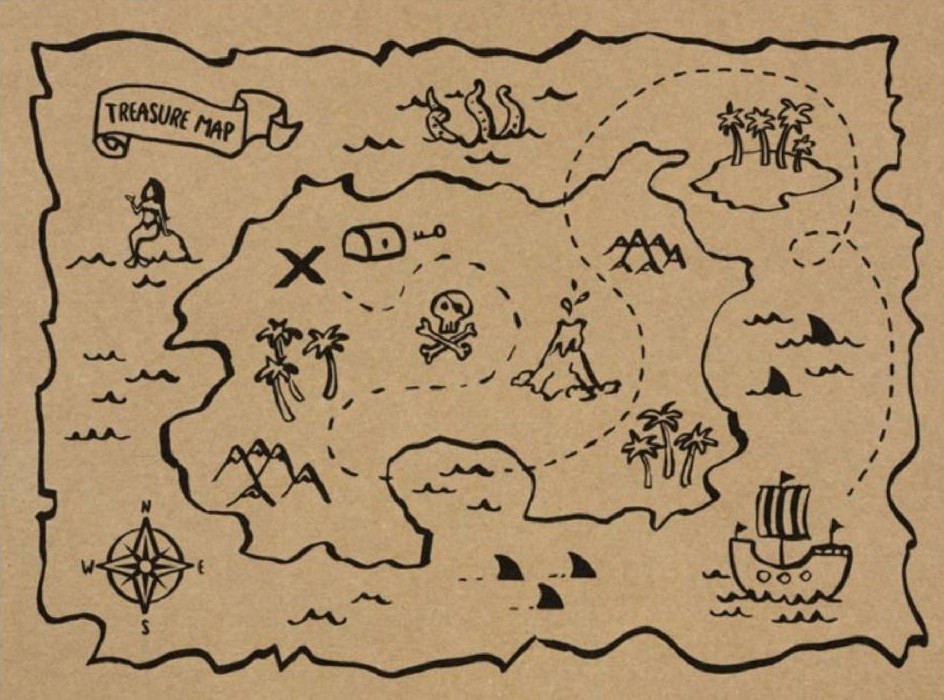 TREASURE MAP
N
W E
S